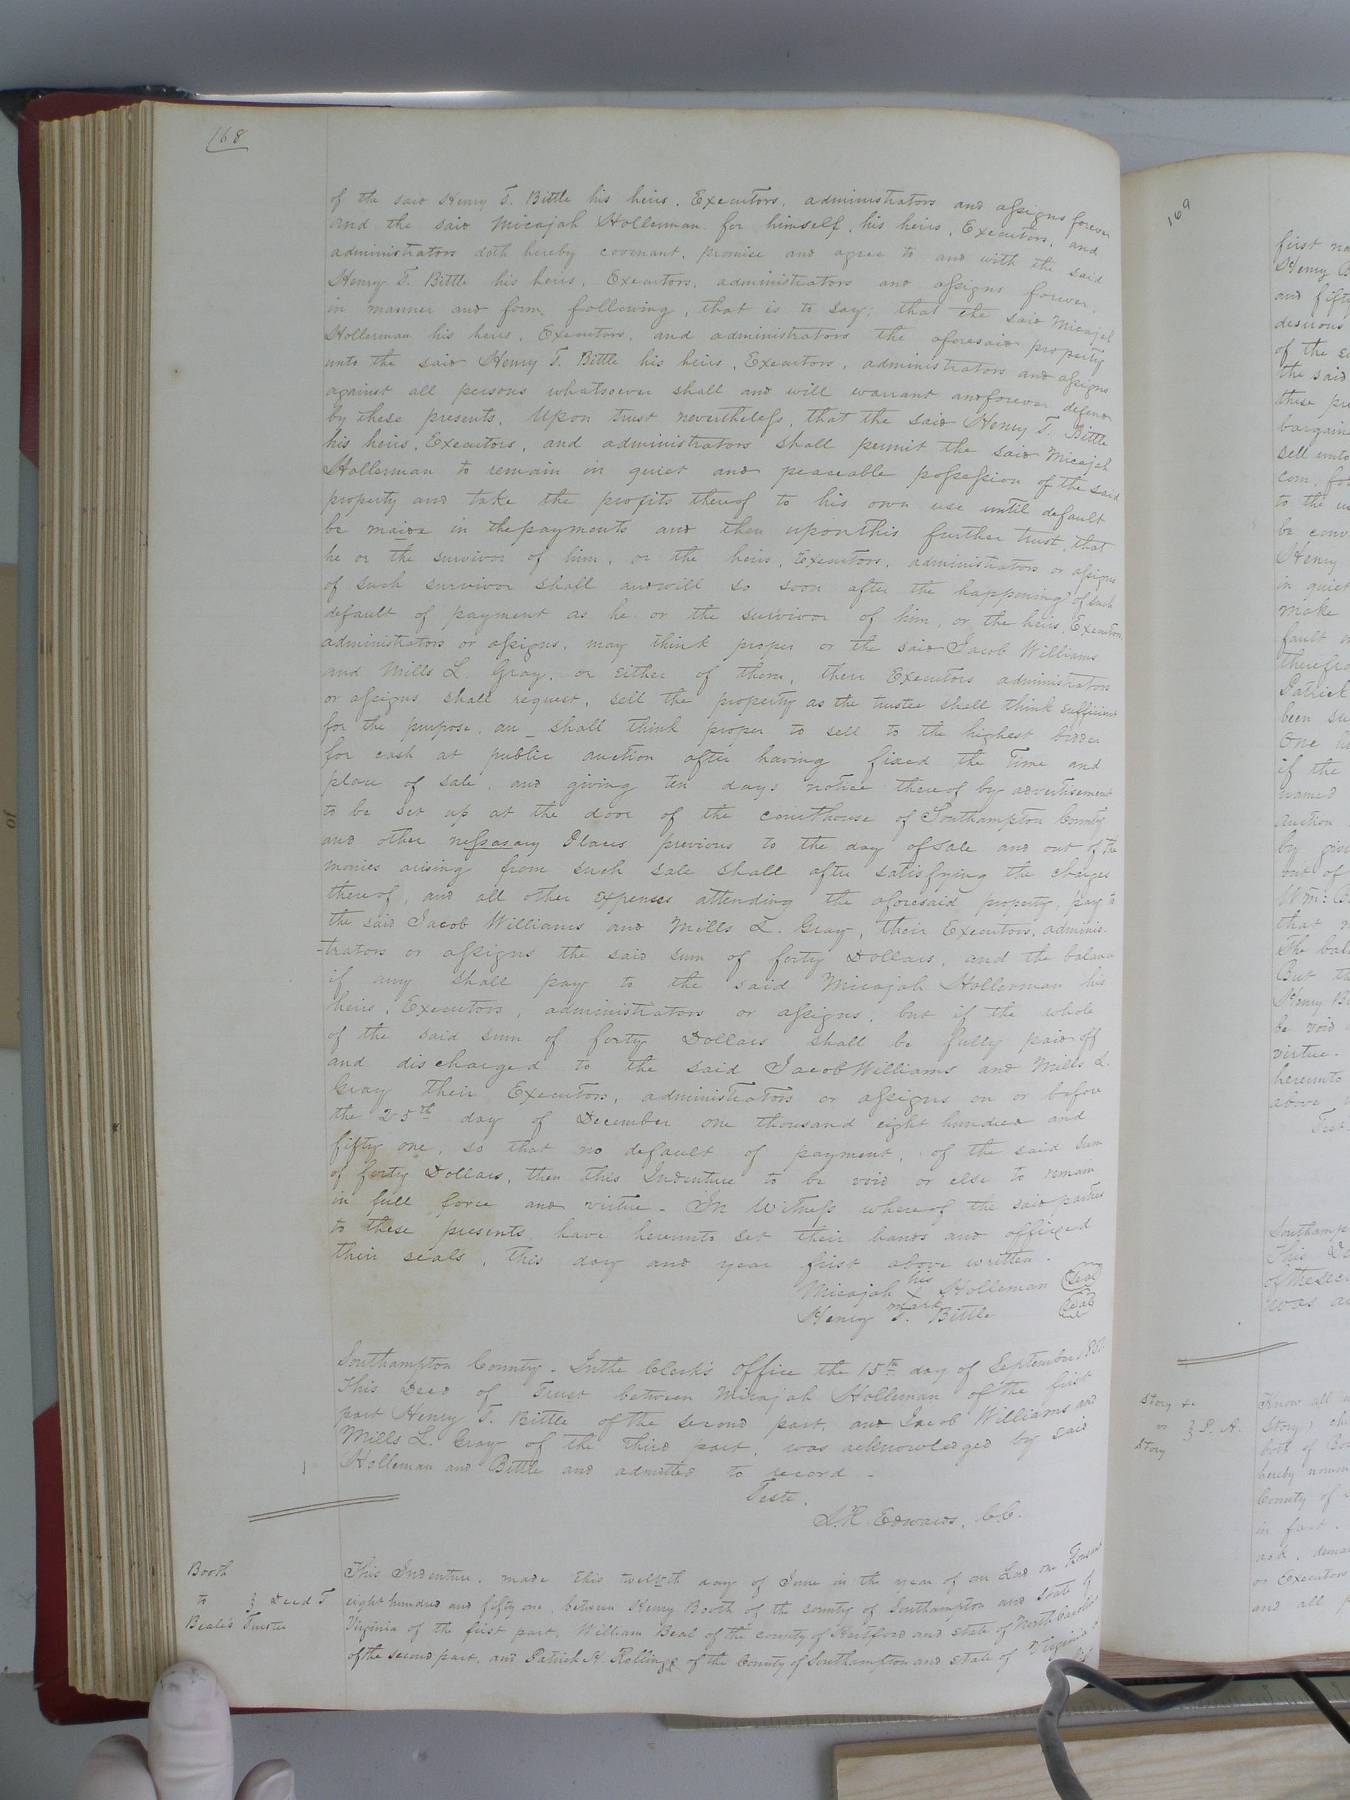 168
of the said Henry T. Bittle his heirs, Executors, administrators and assigns forever
and the said Micajah Holleman for himself, his heirs, Executors, and
administrators doth hereby covenant, promise and agree to and with the said
Henry T. Bittle his heirs, Executors, administrators and assigns forever,
in manner and form following, that is to say; that the said Micajah
Holleman his heirs, Executors, and administrators the aforesaid property
unto the said Henry T. Bittle his heirs, Executors, administrators and assigns
against all persons whatsoever shall and will warrant and forever defend
by these presents. Upon trust nevertheless, that the said Henry T. Bittle
his heirs, Executors, and administrators shall permit the said Micajah
Holleman to remain in quiet and peaceable possession of the said
property and take the profits thereof to his own use until default
be maide in the payments and then upon this further trust, that
he or the survivor of him, or the heirs, Executors, administrators or assigns
of such survivor shall and will so soon after the happening of such
default of payment as he or the survivor of him, or the heirs, Executors,
administrators or assigns, may think proper or the said Jacob Williams
and Mills L. Gray, or either of them, their Executors administrators
or assigns shall request, sell the property as the trustee shall think sufficient
for the purpose, an_ shall think proper to sell to the highest bidder
for cash at public auction after having fixed the time and
place of sale, and giving ten days notice thereof by advertisement
to be set up at the door of the courthouse of Southampton County
and other nessasary Places previous to the day of sale and out of the
monies arising from such sale shall after satisfying the charges
thereof, and all other expenses attending the aforesaid property, pay to
the said Jacob Williams and Mills L. Gray, their Executors, adminis-
-trators or assigns the said sum of forty Dollars, and the balance
if any shall pay to the said Micajah Holleman his
heirs, Executors, administrators or assigns, but if the whole
of the said sum of forty Dollars shall be fully paid off
and discharged to the said Jacob Williams and Mills L.
Gray their Executors, administrators or assigns on or before
the 25th day of December one thousand eight hundred and
fifty one, so that no default of payment, of the said sum
of forty Dollars, then this Indenture to be void or else to remain
in full force and virtue. In Witness whereof the said parties
to these presents have hereunto set their hands and affixed
their seals, this day and year first above written.
his
Micajah X Holleman Seal
mark
Henry T. Bittle Seal
Southampton County - In the Clerk's Office the 15th day of September
This Deed of Trust between Micajah Holleman of the first
part Henry T. Bittle of the second part, and Jacob Williams and
Mills L. Gray of the third part, was acknowledged by said
Holleman and Bittle and admitted to record -
Teste.
L.R. Edwards, C.C.
Booth
to } Deed T
Beale's Trustee
This Indenture, made this twelvth day of June in the year of our Lord one thousand
eight hundred and fifty one, between Henry Booth of the county of Southampton and State of
Virginia of the first part, William Beal of the county of Hartford and state of North Carolina
of the second part, and Patrick H. Rollings of the County of Southampton and State of Virginia
169
first
Henry B
and fifty
desirous
of the
the said
these pr
bargain
sell unto
corn,
to the
be conv
Henry
in quiet
make
fault
therefro
Patrick
been su
One h
if the
named
auction
by givi
out of
Wm: B
that
the bal
But th
Henry B
be void
virtue.
hereunto
above
Test
Southamp
This De
of the sec
was a
Story &c
to } P. A.
Story
Know all
Story,
both of
hereby nomin
County of
in fact
ask, dema
or Executors
and all